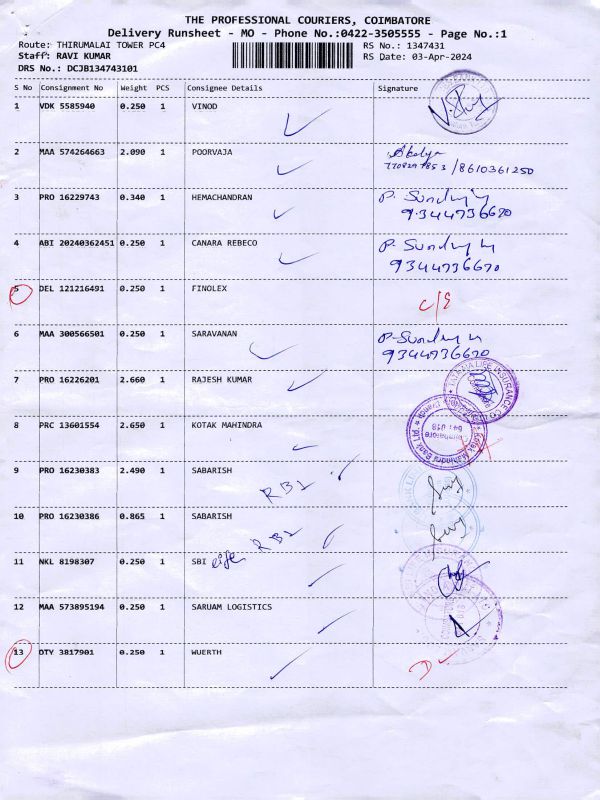 THE PROFESSIONAL COURIERS, COIMBATORE
Delivery Runsheet - MO - Phone No.:0422-3505555 - Page No.:1
Route: THIRUMALAI TOWER PC4 RS No.: 1347431
Staff: RAVI KUMAR RS Date: 03-Apr-2024
DRS No.: DCJB134743101
S No Consignment No Weight PCS Consignee Details Signature
1 VDK 5585940 0.250 1 VINOD
2 MAA 574264663 2.090 1 POORVAJA
/8610361250
3 PRO 16229743 0.340 1 HEMACHANDRAN P. Sundry
9344736670
4 ABI 20240362451 0.250 1 CANARA REBECO P. Sundry
9344736670
5 DEL 121216491 0.250 1 FINOLEX C/S
6 MAA 300566501 0.250 1 SARAVANAN P. Sundry
9344736670
7 PRO 16226201 2.660 1 RAJESH KUMAR
LIFE INSURANCE CO
8 PRC 13601554 2.650 1 KOTAK MAHINDRA
Kotak Mahindra Bank Ltd
Coimbatore
641 018
9 PRO 16230383 2.490 1 SABARISH
RBL
10 PRO 16230386 0.865 1 SABARISH
RBL
11 NKL 8198307 0.250 1 SBI life
12 MAA 573895194 0.250 1 SARUAM LOGISTICS
13 DTY 3817901 0.250 1 WUERTH D